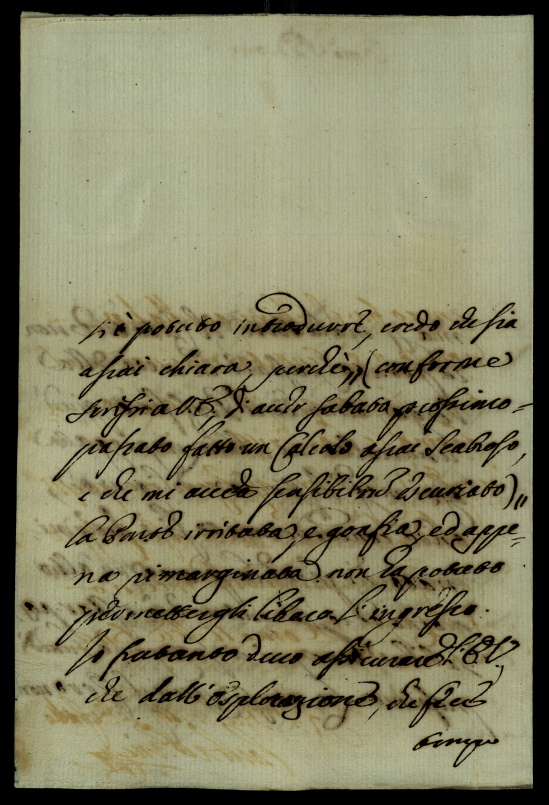 si è potuto introdurre, credo che sia
assai chiara, perchè,, (conforme
scrissi a V. E. d'aver sabato prossimo=
passato fatto un Calcolo assai scabroso,
e che mi aveva sensibilmte escuriato),,
la Parte irritata, e gonfia, ed appe=
na rimarginata non ha potuto
permettergli libero l'ingresso.
Io frattanto devo assicurare l'E. V.
che dall'esplorazione, che feci
tempo